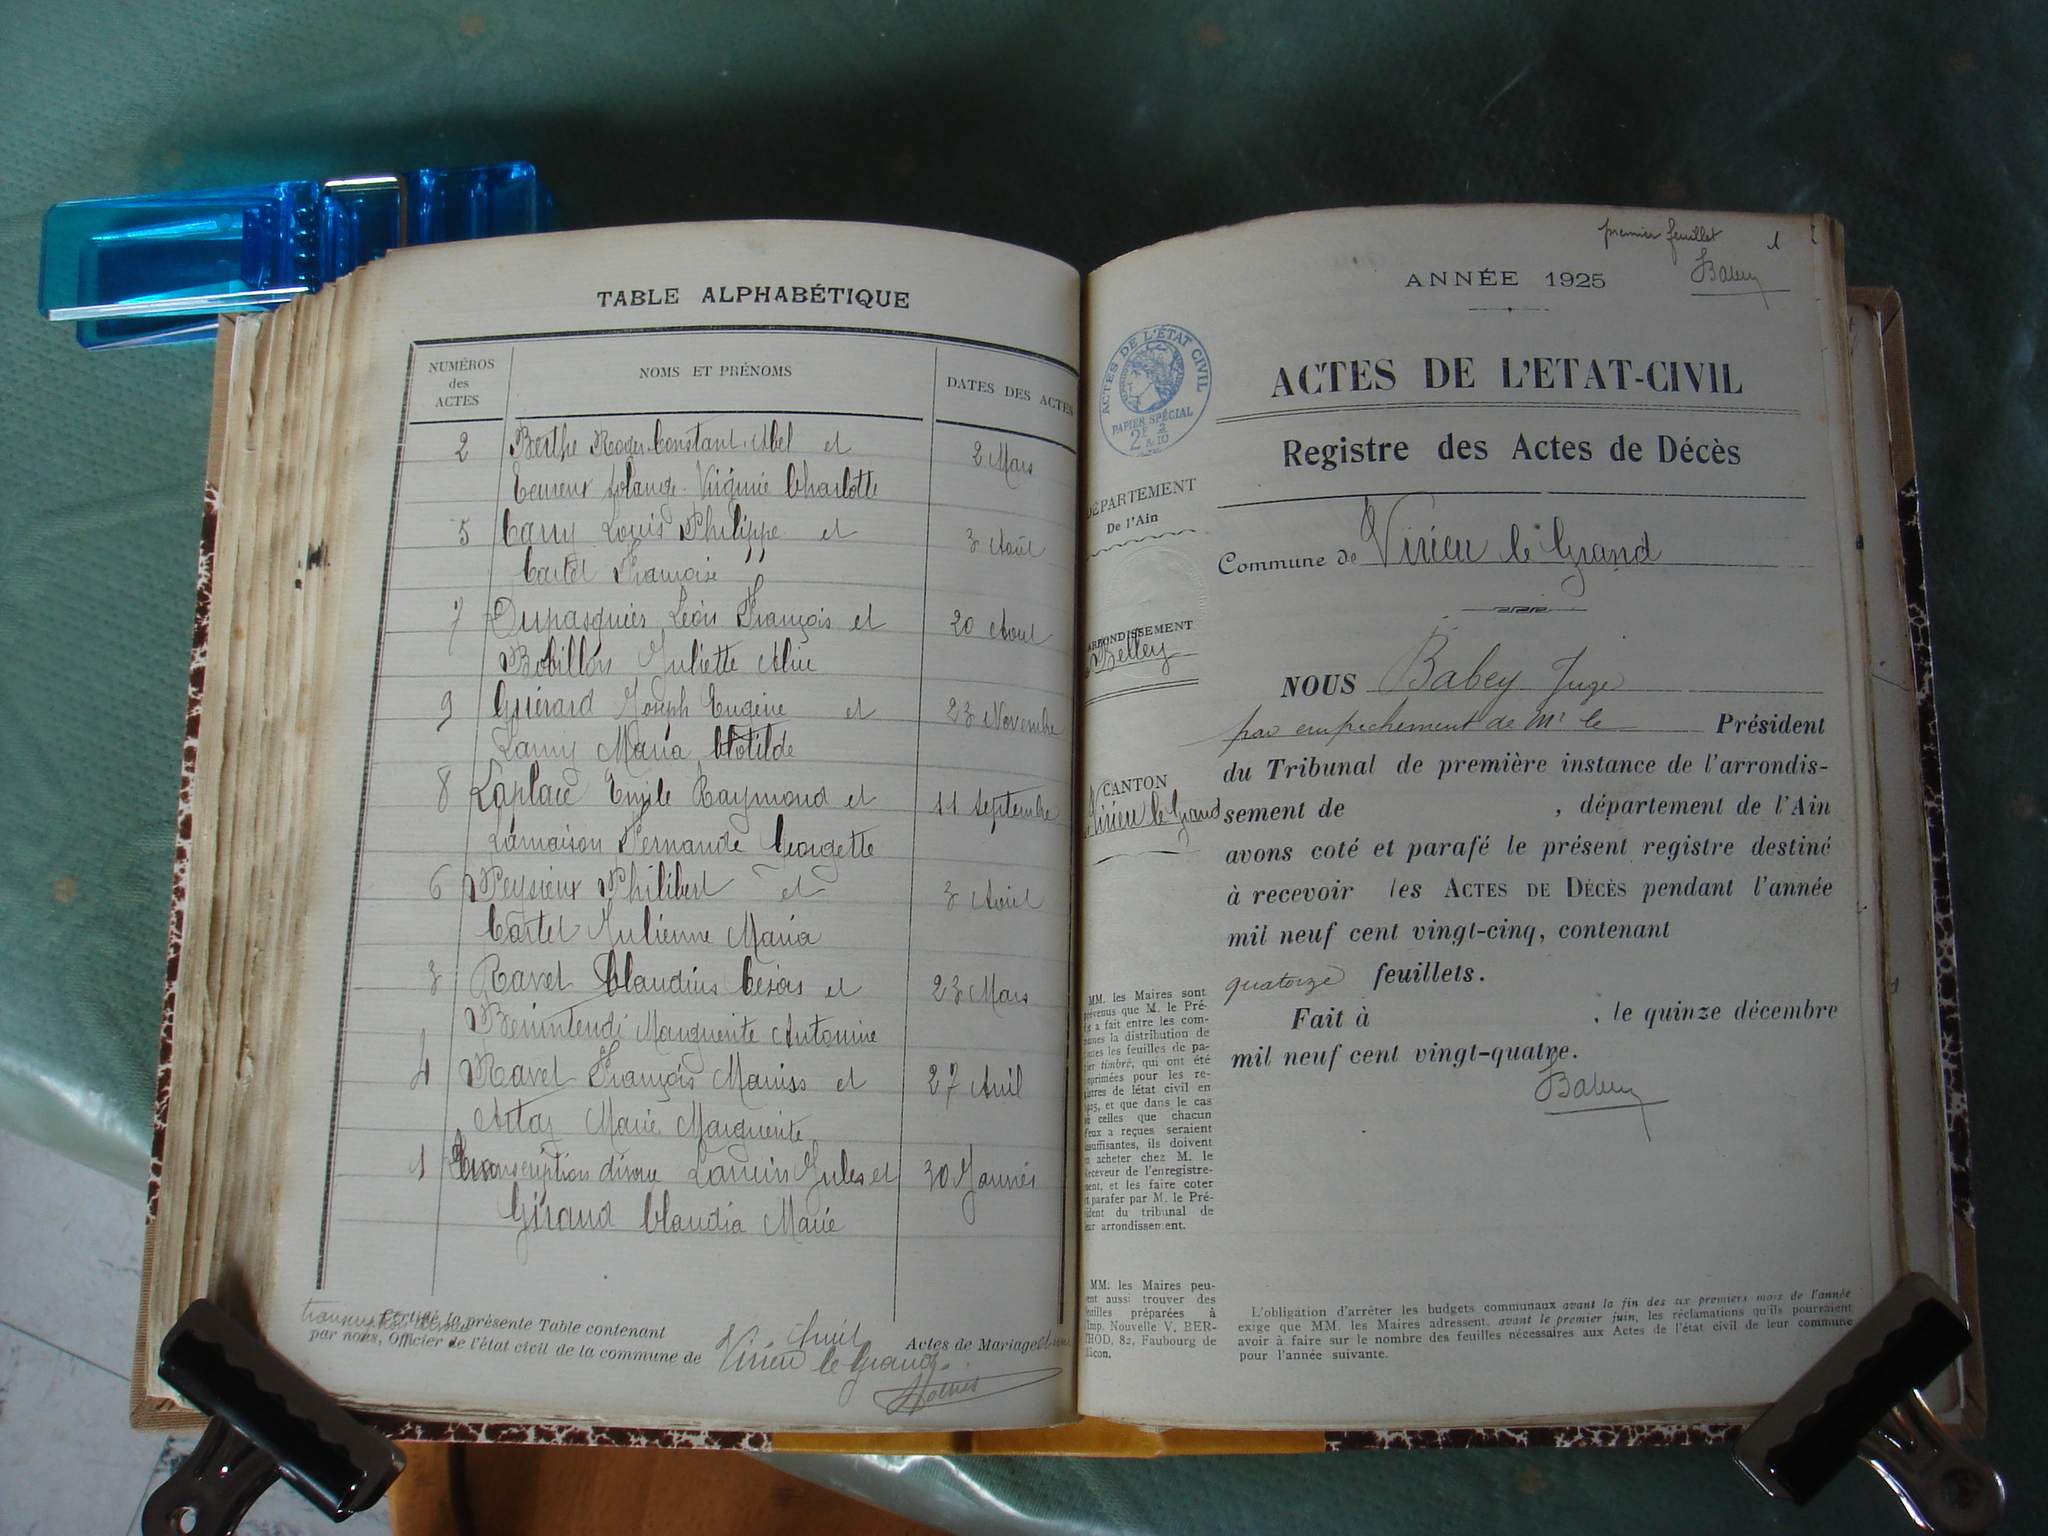 TABLE ALPHABÉTIQUE
NUMÉROS
des
ACTES
NOMS ET PRÉNOMS
DATES DES ACTES
2 Berthe Roger Constant Abel et 2 Mars
Solange Virginie Charlotte
5 Louis Philippe et 3 Août
Cartet Françoise
7 Dupasquier Léon François et 20 Aout
Bobillon Juliette Alice
9 Guérard Joseph Eugène et 23 Novembre
Lamy Maria Clotilde
8 Laplace Emile Raymond et 11 Septembre
Lamaison Fernande Georgette
6 Peysieux Philibert et 3
Cartet Julienne Maria
3 Ravet Claudius César et 23 Mars
Benintendi Marguerite Antoinine
4 Ravet François Marius et 27 Avril
Artaz Marie Marguerite
1 Transcription divorce Jules et 30 Janvier
Giraud Claudia Marie
Certifié la présente Table contenant huit Actes de Mariage
par nous, Officier de l'état civil de la commune de Virieu le Grand
premier feuillet 1
Babey
ANNÉE 1925
ACTES DE L'ÉTAT CIVIL
PAPIER SPÉCIAL
ACTES DE L'ETAT-CIVIL
Registre des Actes de Décès
DÉPARTEMENT
De l'Ain
Commune de Virieu le Grand
ARRONDISSEMENT
Belley
CANTON
Virieu le Grand
NOUS Babey Juge
par empêchement de Mr le Président
du Tribunal de première instance de l'arrondis-
sement de , département de l'Ain
avons coté et parafé le présent registre destiné
à recevoir les ACTES DE DÉCÈS pendant l'année
mil neuf cent vingt-cinq, contenant
quatorze feuillets.
Fait à , le quinze décembre
mil neuf cent vingt-quatre.
Babey
MM. les Maires sont
prévenus que M. le Pré-
a fait entre les com-
munes la distribution de
toutes les feuilles de pa-
pier timbré, qui ont été
imprimées pour les re-
gistres de létat civil en
1925, et que dans le cas
où celles que chacun
d'eux a reçues seraient
insuffisantes, ils doivent
en acheter chez M. le
Receveur de l'enregistre-
ment, et les faire coter
et parafer par M. le Pré-
sident du tribunal de
leur arrondissement.
MM. les Maires peu-
vent aussi trouver des
feuilles préparées à
l'Imp. Nouvelle V. BER-
THOD, 82, Faubourg de
Mâcon.
L'obligation d'arrêter les budgets communaux avant la fin des six premiers mois de l'année
exige que MM. les Maires adressent, avant le premier juin, les réclamations qu'ils pourraient
avoir à faire sur le nombre des feuilles nécessaires aux Actes de l'état civil de leur commune
pour l'année suivante.